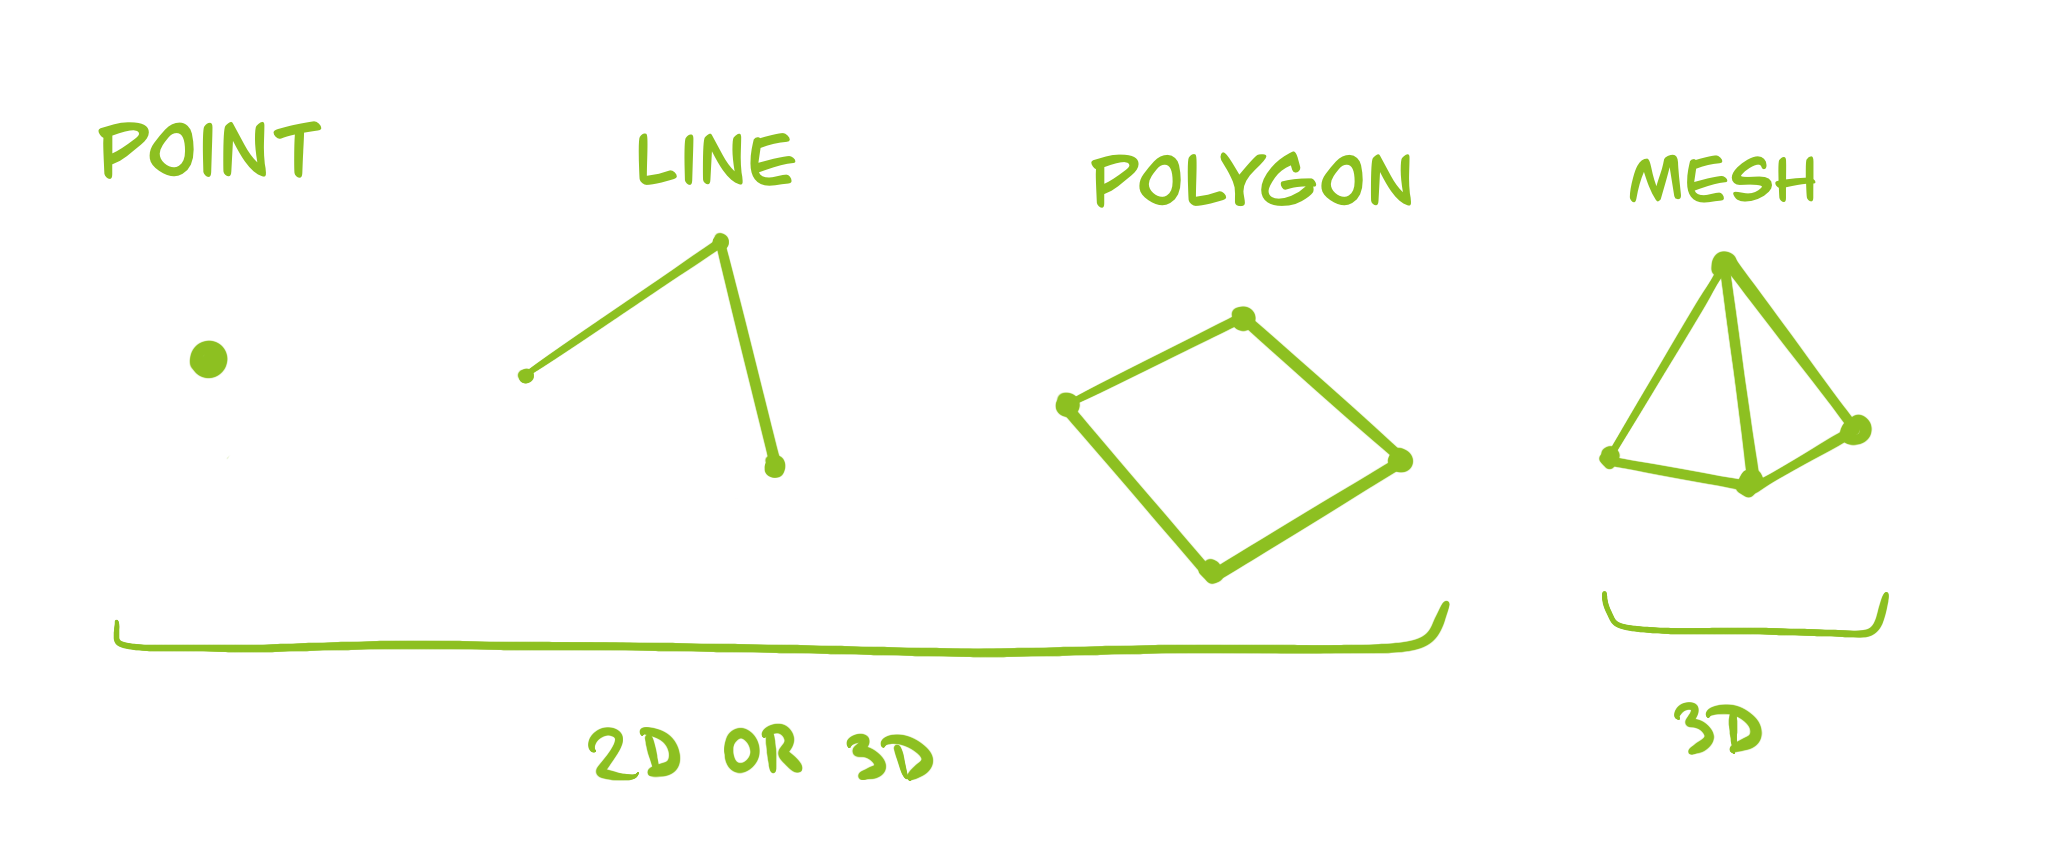 POINT
LINE
POLYGON
MESH
2D OR 3D
3D